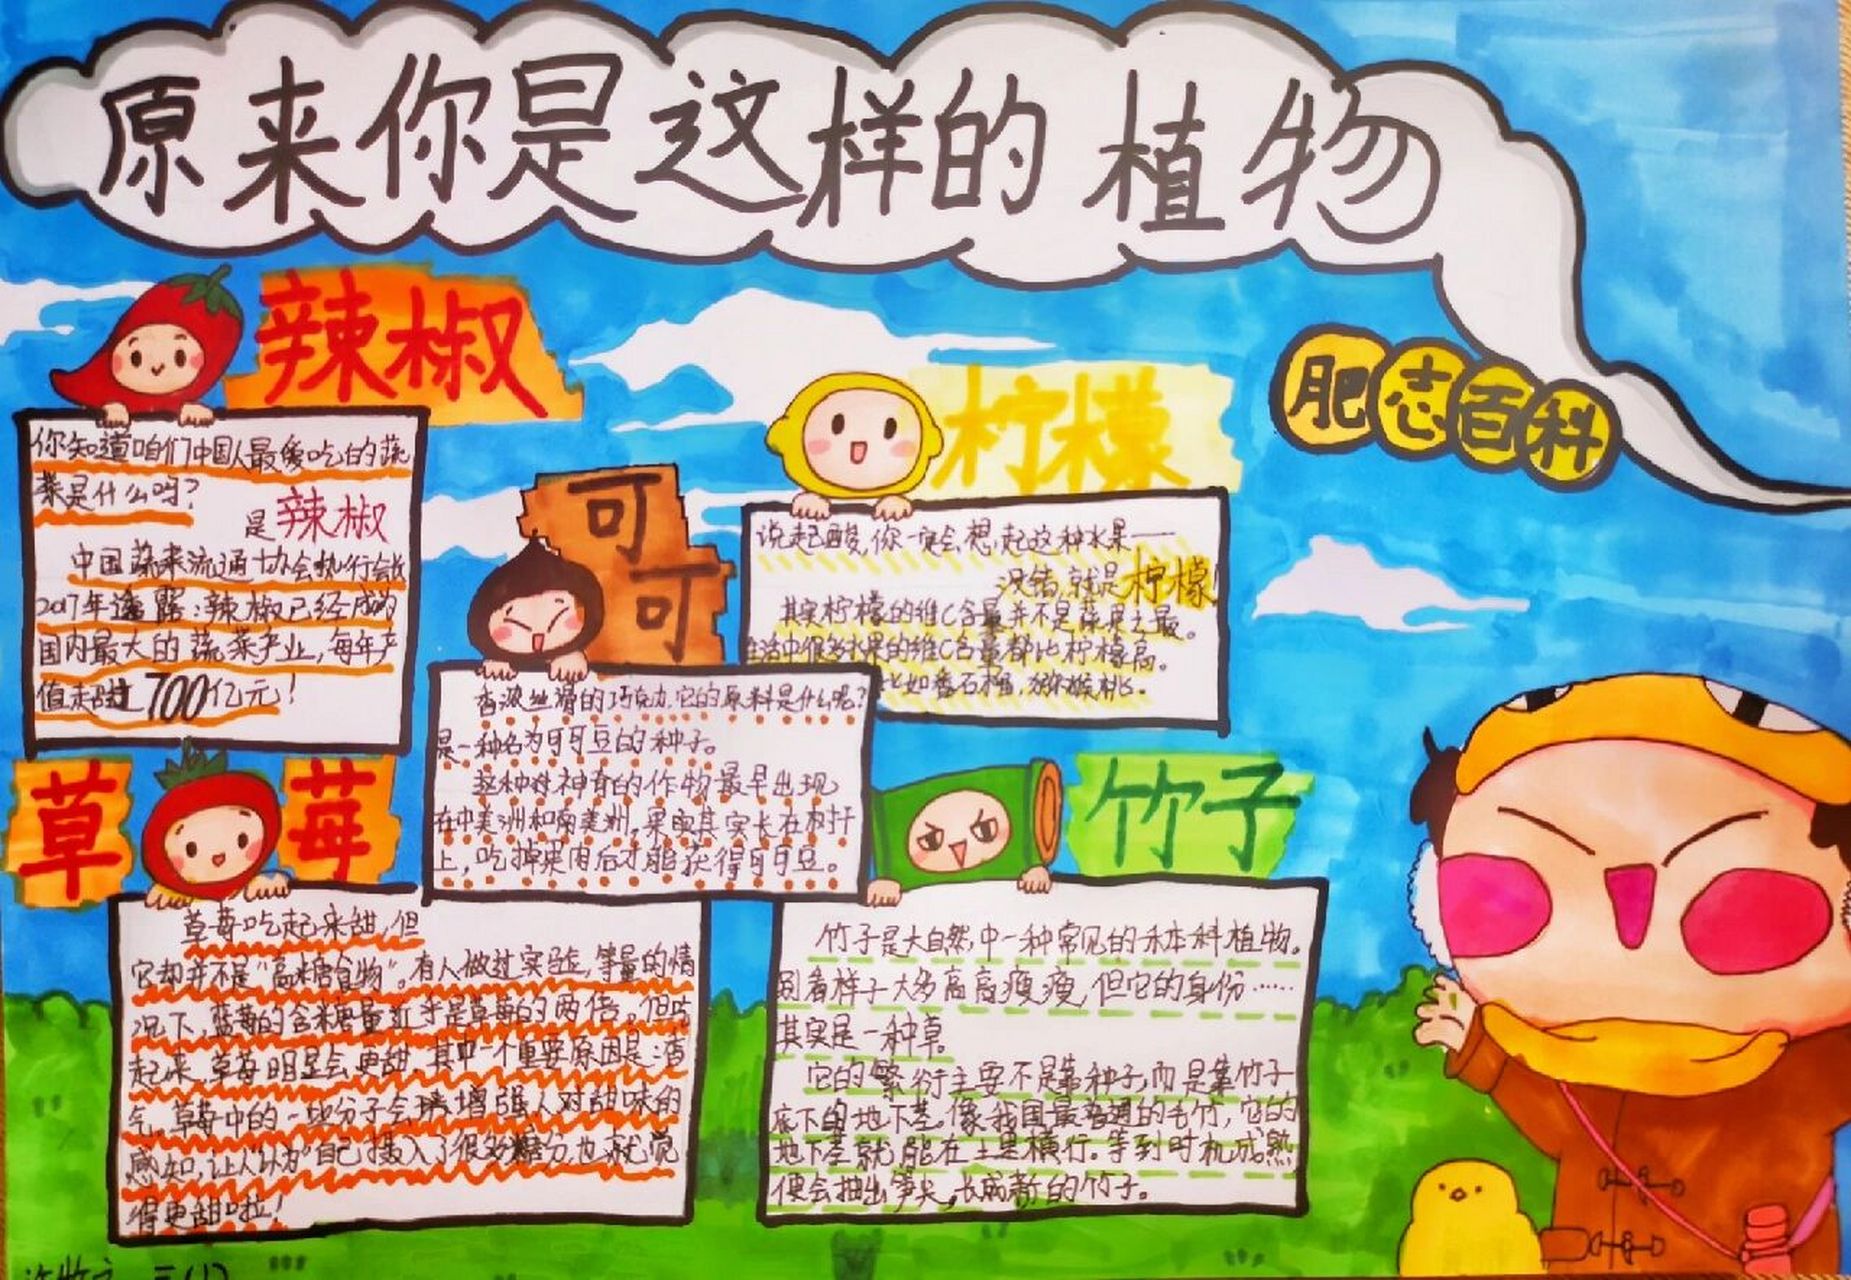 原来你是这样的植物
肥志百科
辣椒
你知道咱们中国人最爱吃的蔬
菜是什么吗?
是辣椒
中国蔬菜流通协会执行会长
2017年透露:辣椒已经成为
国内最大的蔬菜产业,每年产
值超过700亿元!
柠檬
说起酸,你一定会想起这种水果——
没错,就是柠檬!
其实柠檬的维C含量并不是蔬果之最。
生活中很多水果的维C含量都比柠檬高。
比如番石榴,猕猴桃。
可可
香浓丝滑的巧克力,它的原料是什么呢?
是一种名为可可豆的种子。
这种神奇的作物最早出现
在中美洲和南美洲。果实其实长在树干
上,吃掉果肉后才能获得可可豆。
草莓
草莓吃起来甜,但
它却并不是“高糖食物”。有人做过实验,等量的情
况下,蓝莓的含糖量近乎是草莓的两倍。但吃
起来,草莓明显会更甜。其中一个重要原因是:香
气。草莓中的一些分子会增强人对甜味的
感知,让人以为自己摄入了很多糖分,也就觉
得更甜啦!
竹子
竹子是大自然中一种常见的禾本科植物。
别看样子大多高高瘦瘦,但它的身份……
其实是一种草。
它的繁衍主要不是靠种子,而是靠竹子
底下的地下茎。像我国最普通的毛竹,它的
地下茎就能在土里横行。等到时机成熟
便会抽出笋尖,长成新的竹子。
三(1)